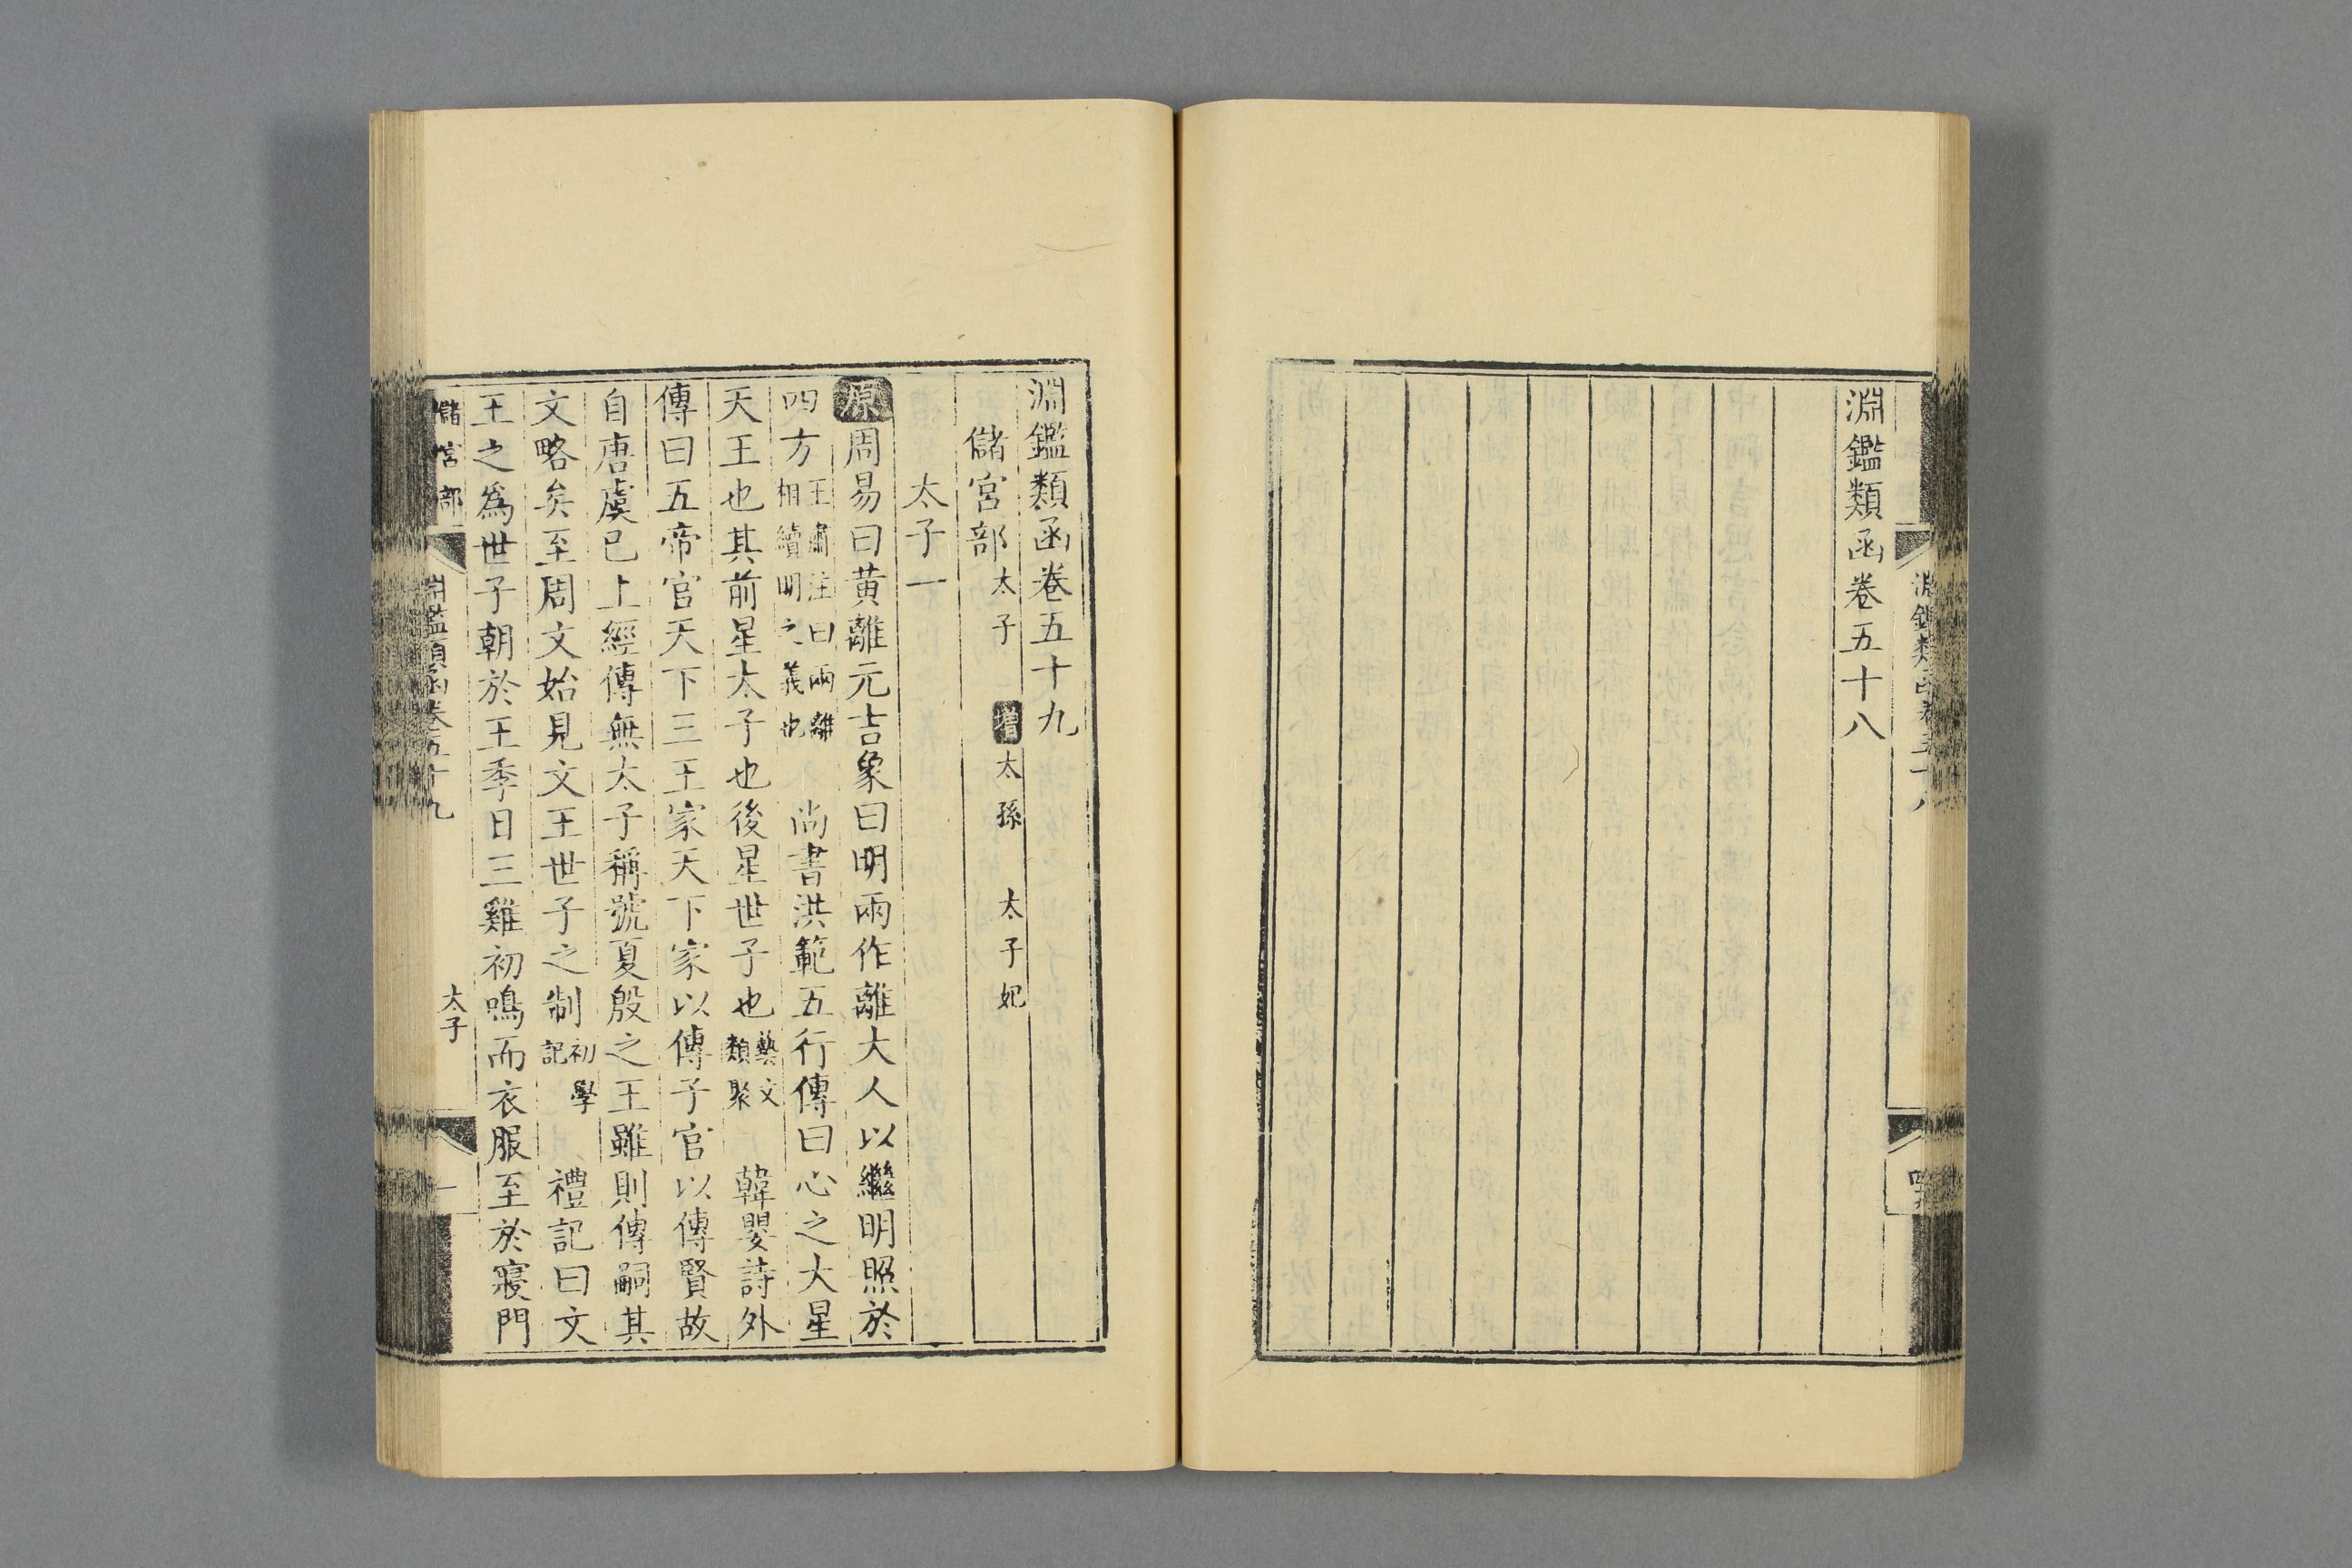 淵鑑類函卷五十八
淵鑑類函卷五十九
儲宮部 太子 增 太孫 太子妃
太子一
原 周易曰黄離元吉象曰明兩作離大人以繼明照於
四方 王肅注曰兩離相續明之義也 尚書洪範五行傳曰心之大星
天王也其前星太子也後星世子也 藝文類聚 韓嬰詩外
傳曰五帝官天下三王家天下家以傳子官以傳賢故
自唐虞已上經傳無太子稱號夏殷之王雖則傳嗣其
文略矣至周文始見文王世子之制 初學記 禮記曰文
王之為世子朝於王季日三雞初鳴而衣服至於寢門
儲宮部 淵鑑類函卷五十九 太子 一